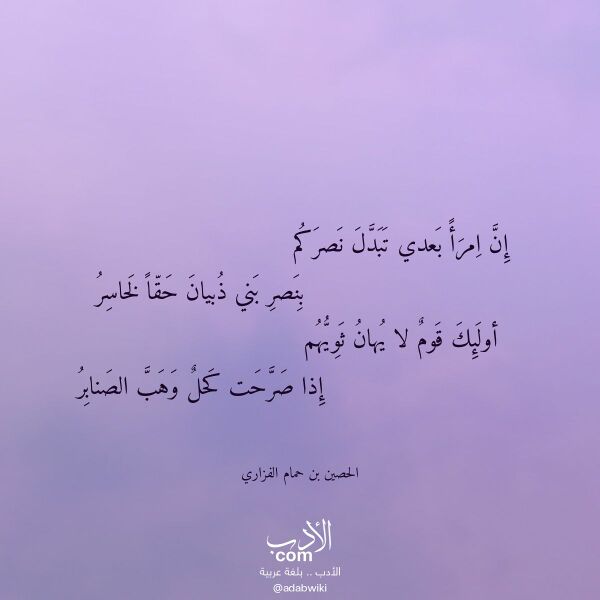 إِنَّ اِمرَأً بَعدي تَبَدَّلَ نَصرَكُم
بِنَصرِ بَني ذُبيانَ حَقّاً لَخاسِرُ
أولَئِكَ قَومٌ لا يُهانُ ثَوِيُّهُم
إِذا صَرَّحَت كَحلٌ وَهَبَّ الصَنابِرُ
الحصين بن حمام الفزاري
الأدب
.com
الأدب .. بلغة عربية
@adabwiki